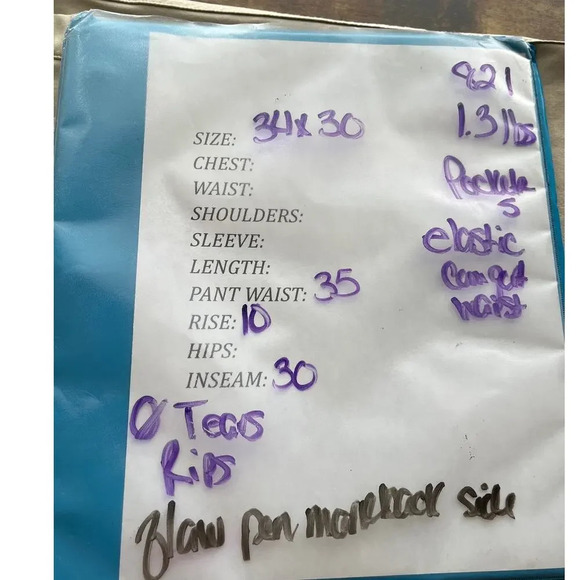 821
1.3 lbs
SIZE: 34x30
CHEST:
WAIST:
Pockets
SHOULDERS:
SLEEVE:
elastic
LENGTH:
PANT WAIST: 35
waist
RISE: 10
HIPS:
INSEAM: 30
0 Tears
Rips
flaw pen mark back side